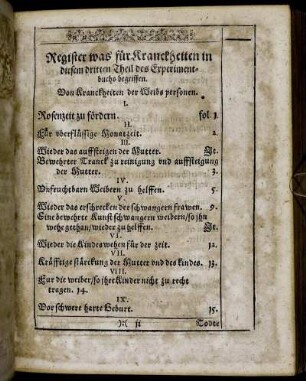 Register was für Kranckheiten in
diesem dritten Theil des Experiment-
buchs begriffen.
Von Kranckheiten der Weibs personen.
I.
Rosenzeit zu fördern. fol 1
II.
Für vberflüssige Monatzeit. 2.
III.
Wieder das auffsteigen der Mutter. It.
Bewehrter Tranck zu reinigung vnd auffsteigung
der Mutter. 3.
IV.
Vnfruchtbarn Weibern zu helffen. 5.
V.
Wieder das erschrecken der schwangern frawen. 9.
Eine bewehrte Kunst schwangern weibern / so ihn
wehe gethan / wieder zu helffen. It.
VI.
Wieder die Kindeswehen für der zeit. 12.
VII.
Kräfftige stärckung der Mutter vnd des kindes. 13.
VIII.
Für die weiber / so ihre Kinder nicht zu recht
tragen. 14.
IX.
Vor schwere harte Geburt. 15.
ij Todte